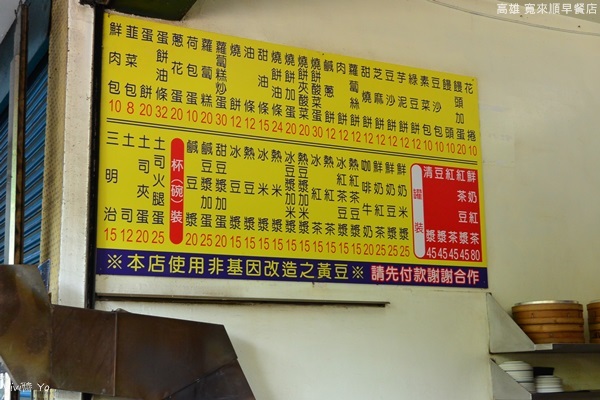 高雄 寬來順早餐店
鮮肉包 10
韮菜包 8
蛋餅 20
蛋餅油條 32
蔥花蛋 20
荷包蛋 10
蘿蔔糕 20
蘿蔔糕炒蛋 30
燒餅 12
油條 12
甜油條 15
燒餅油條 24
燒餅加蛋 20
燒餅夾酸菜 20
芝麻餅 12
豆沙餅 12
芋泥餅 12
綠豆餅 12
素菜包 10
豆沙包 10
饅頭 10
饅頭加蛋 20
花捲 10
三明治 15
土司 12
土司夾蛋 20
土司火腿蛋 25
杯(碗)裝
鹹豆漿 20
鹹豆漿加蛋 25
甜豆漿加蛋 20
冰豆漿 15
熱豆漿 15
冰米漿 15
熱米漿 15
冰豆漿加米漿 15
熱豆漿加米漿 15
冰紅茶 15
熱紅茶 15
冰紅茶豆漿 15
熱紅茶豆漿 15
咖啡牛奶 20
鮮奶紅茶 25
鮮奶豆漿 25
鮮奶米漿 25
罐裝
清漿 45
豆漿 45
紅茶 45
紅茶豆漿 45
鮮奶紅茶 80
※本店使用非基因改造之黃豆※ 請先付款謝謝合作